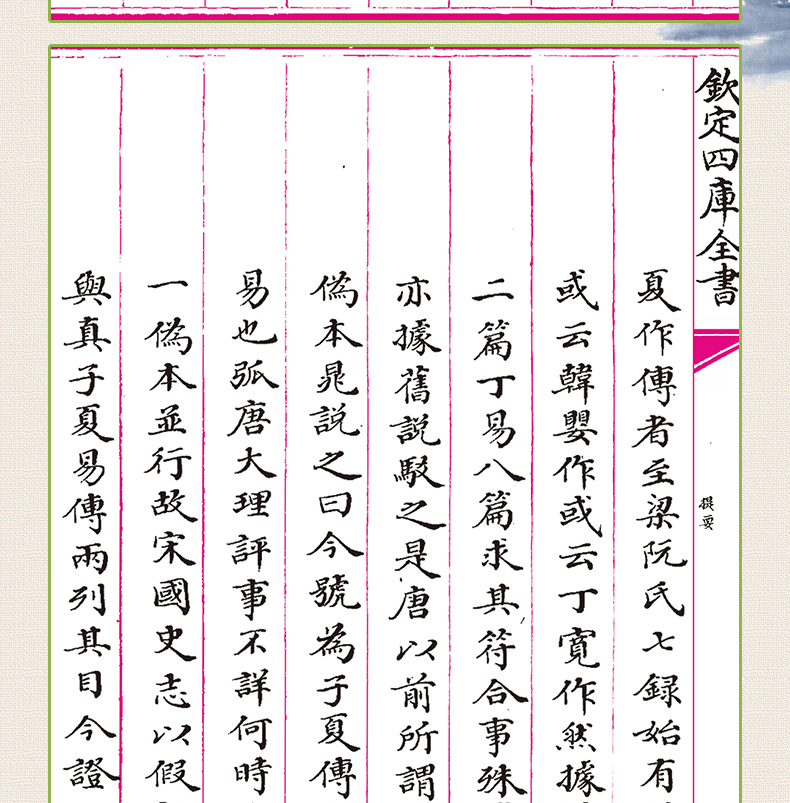 欽定四庫全書
提要
夏作傳者至梁阮氏七録始有
或云韓嬰作或云丁寛作然據
二篇丁易八篇求其符合事殊
亦據舊説駁之是唐以前所謂
偽本晁説之曰今號為子夏傳
易也弧唐大理評事不詳何時
一偽本並行故宋國史志以假
與真子夏易傳兩列其目今證